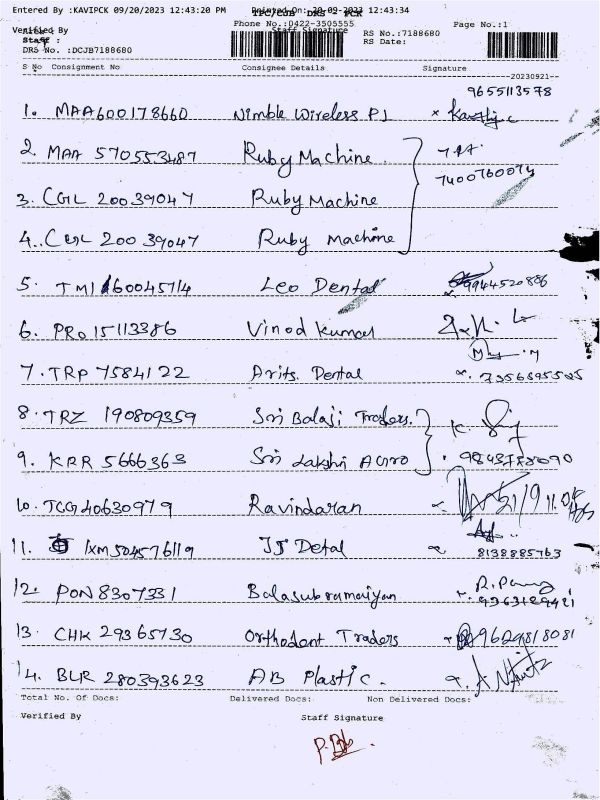 Entered By :KAVIPCK 09/20/2023 12:43:20 PM Printed On: 20-09-2023 12:43:34
TPC/CJB DRS PCK
Phone No.:0422-3505555 Page No.:1
Verified By Staff Signature RS No.:7188680
Staff : RS Date:
DRS No. :DCJB7188680
S No Consignment No Consignee Details Signature
--20230921--
9655113578
1. MAA600178660 Nimble Wireless PL
2. MAA 570553487 Ruby Machine.
7400760074
3. CGL 20039047 Ruby Machine
4. CGL 200 39047 Ruby machine
5. TM1 160045714 Leo Dental 9944520886
6. PRO 15113386 Vinod Kumar
7. TRP 7584122 Arits. Dental 7356695505
8. TRZ 190809359 Sri Balaji Traders.
9. KRR 5666363 Sri Lakshi Agro
10. TCG40630979 Ravindaran 21/9
11. IXM504576119 JJ Detal 8138885763
12. PON 8307331 Balasubramaiyan
13. CHK 29365730 Orthodent Traders 9629818081
14. BLR 280393623 AB Plastic.
Total No. Of Docs: Delivered Docs: Non Delivered Docs:
Verified By Staff Signature